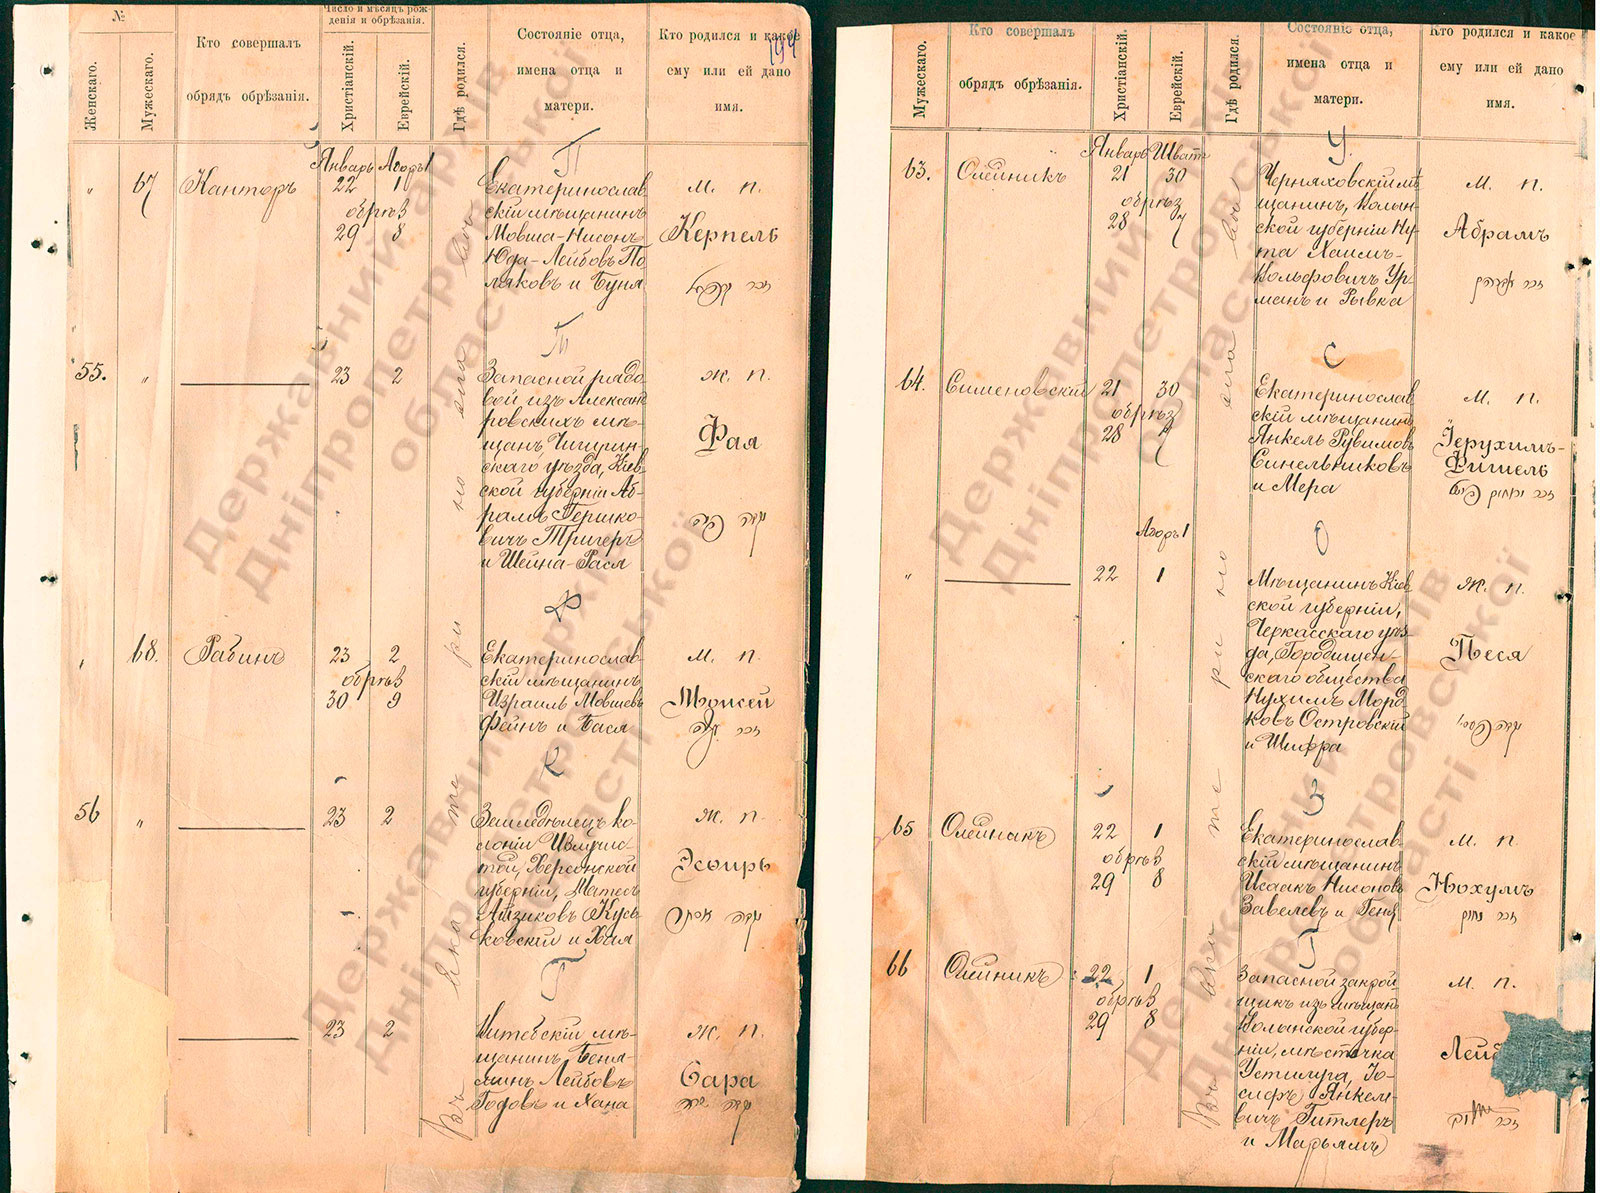 №
Число и мѣсяцъ рож-
денія и обрѣзанія.
Женскаго.
Мужескаго.
Кто совершалъ
обрядъ обрѣзанія.
Христіанскій.
Еврейскій.
Гдѣ родился.
Состояніе отца,
имена отца и
матери.
Кто родился и какое
ему или ей дано
имя.
194
П
Январь Адоръ 1
" 67 Канторъ 22 1
обрѣз
29 8
Екатеринослав
скій мѣщанинъ
Мовша-Нисонъ
Юда-Лейбовъ По
ляковъ и Буня
м. п.
Керпель
Т
55. " 23 2
Запасной рядо
вой изъ Александ
ровскихъ мѣ-
щанъ, Чигирин-
скаго уѣзда, Кіев
ской губерніи Аб-
рамъ Гершко-
вичъ Тригеръ
и Шейна-Рася
ж. п.
Фая
Ф
68. Рабинъ 23 2
обрѣз
30 9
Екатеринослав-
скій мѣщанинъ
Израиль Мовшевъ
Фейнъ и Бася
м. п.
Мошкей
К
56 " 23 2
Земледѣлецъ ко-
лоніи Излучис-
той, Херсонской
губерніи, Матесъ
Айзиковъ Кусь-
ковскій и Хая
ж. п.
Эсѳирь
Г
23 2
Витебскій мѣ-
щанинъ Беня-
минъ Лейбовъ
Годовъ и Хана
ж. п.
Сара
Въ Екате ри но славѣ
Мужескаго.
Кто совершалъ
обрядъ обрѣзанія.
Христіанскій.
Еврейскій.
Гдѣ родился.
Состояніе отца,
имена отца и
матери.
Кто родился и какое
ему или ей дано
имя.
У
Январь Шватъ
63. Олейникъ 21 30
обрѣз
28 7
Черняховскій мѣ
щанинъ, Волын-
ской губерніи Ну-
та Хаимъ-
Вольфовичъ Ур-
манъ и Рывка
м. п.
Абрамъ
С
64. Сименовскій 21 30
обрѣз
28 7
Екатеринослав
скій мѣщанинъ
Янкель Рувимовъ
Синельниковъ
и Мера
м. п.
Іерухимъ-
Фишель
Адоръ 1
О
" 22 1
Мѣщанинъ Кіев
ской губерніи,
Черкасскаго уѣз
да, Городищен-
скаго общества
Нухимъ Морд
ковъ Островскій
и Шифра
ж. п.
Песя
З
65 Олейникъ 22 1
обрѣз
29 8
Екатеринослав-
скій мѣщанинъ
Исаакъ Нисоновъ
Завелевъ и Геня
м. п.
Нохумъ
Г
66 Олейникъ 22 1
обрѣз
29 8
Запасной закрой
щикъ изъ мѣщанъ
Волынской губер-
ніи, мѣстечка
Устилуга, Іо-
сифъ Янкеле-
вичъ Гитлеръ
и Марьямъ
м. п.
Лейб
Державний архів
Дніпропетровської
області